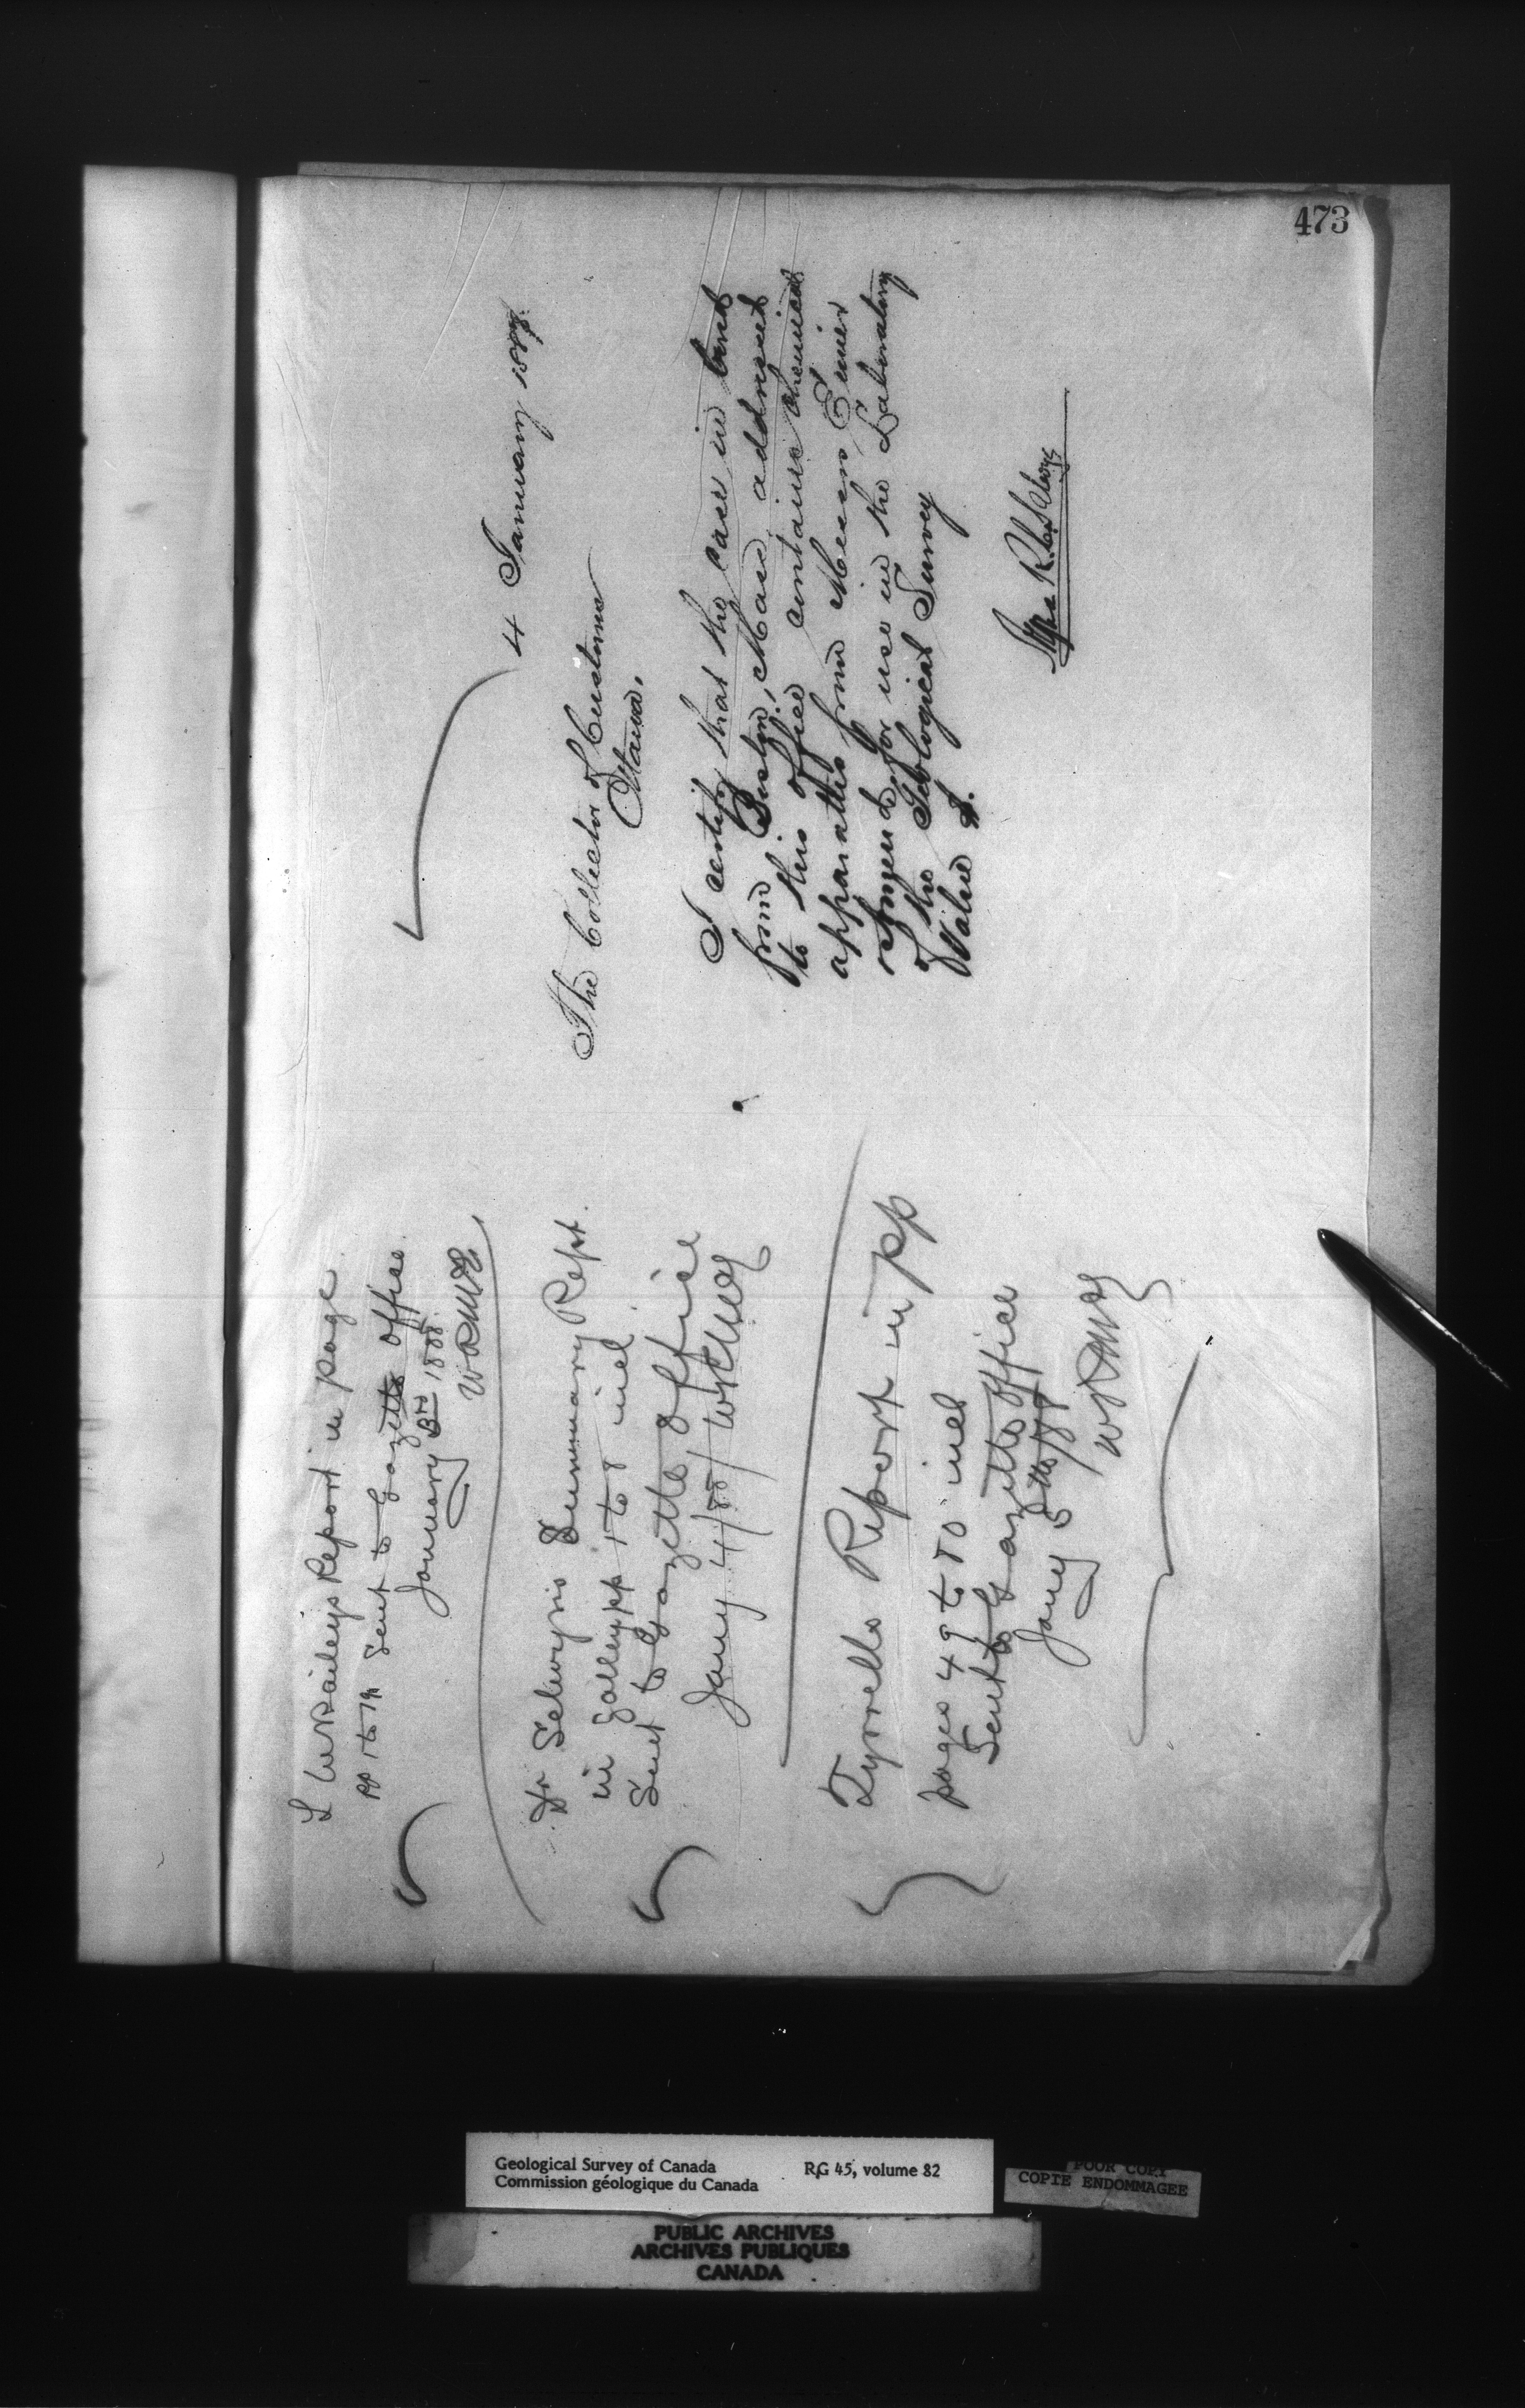 473
L W Baileys Report in page
pp 1 to 14 Sent to Gazette Office.
January 3rd 1888
WRMcE
Dr Selwyns Summary Rept.
in Galley pp 1 to 8 incl
Sent to Gazette Office
Jany 4/88/ WRMcE
Tyrrells Report in pp
pages 49 to 80 incl
Sent to Gazette Office
Jany 5th/88
WRMcE
4 January 188
The Collector of Customs
Ottawa.
I certify that the case in bond
from Boston, Mass, addressed
to this office contains chemical
apparatus from Messrs Eimer
required for use in the Laboratory
of the Geological Survey
Value $.
Geological Survey of Canada RG 45, volume 82
Commission géologique du Canada
POOR COPY
COPIE ENDOMMAGEE
PUBLIC ARCHIVES
ARCHIVES PUBLIQUES
CANADA